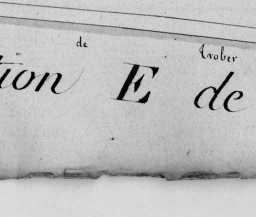 de Trober
tion E de